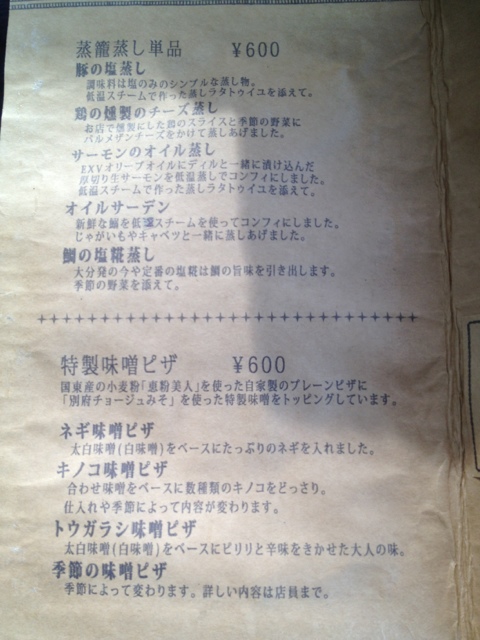 蒸籠蒸し単品　￥600
豚の塩蒸し
調味料は塩のみのシンプルな蒸し物。
低温スチームで作った蒸しラタトゥイユを添えて。
鶏の燻製のチーズ蒸し
お店で燻製にした鶏のスライスと季節の野菜に
パルメザンチーズをかけて蒸しあげました。
サーモンのオイル蒸し
EXVオリーブオイルにディルと一緒に漬け込んだ
厚切り生サーモンを低温蒸しでコンフィにしました。
低温スチームで作った蒸しラタトゥイユを添えて。
オイルサーデン
新鮮な鰯を低温スチームを使ってコンフィにしました。
じゃがいもやキャベツと一緒に蒸しあげました。
鯛の塩糀蒸し
大分発の今や定番の塩糀は鯛の旨味を引き出します。
季節の野菜を添えて。
特製味噌ピザ　￥600
国東産の小麦粉「恵粉美人」を使った自家製のプレーンピザに
「別府チョージュみそ」を使った特製味噌をトッピングしています。
ネギ味噌ピザ
太白味噌(白味噌)をベースにたっぷりのネギを入れました。
キノコ味噌ピザ
合わせ味噌をベースに数種類のキノコをどっさり。
仕入れや季節によって内容が変わります。
トウガラシ味噌ピザ
太白味噌(白味噌)をベースにピリリと辛味をきかせた大人の味。
季節の味噌ピザ
季節によって変わります。詳しい内容は店員まで。